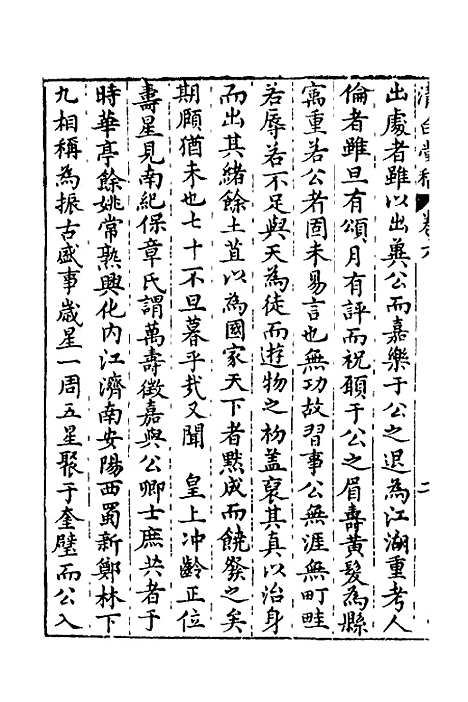 清白堂稿 卷六 二
出處者雖以出冀公而嘉樂于公之退為江湖重考人
倫者雖旦有頌月有評而祝願于公之眉壽黃髮為縣
寓重若公者固未易言也無功故習事公無涯無町畦
若辱若不足與天為徒而遊物之初蓋裒其真以治身
而出其緒餘土苴以為國家天下者點成而饒發之矣
期頤猶未也七十不旦暮乎哉又聞 皇上冲齡正位
壽星見南紀保章氏謂萬壽徵嘉與公卿士庶共者于
時華亭餘姚常熟興化內江濟南安陽西蜀新鄭林下
九相稱為振古盛事歲星一周五星聚于奎璧而公入